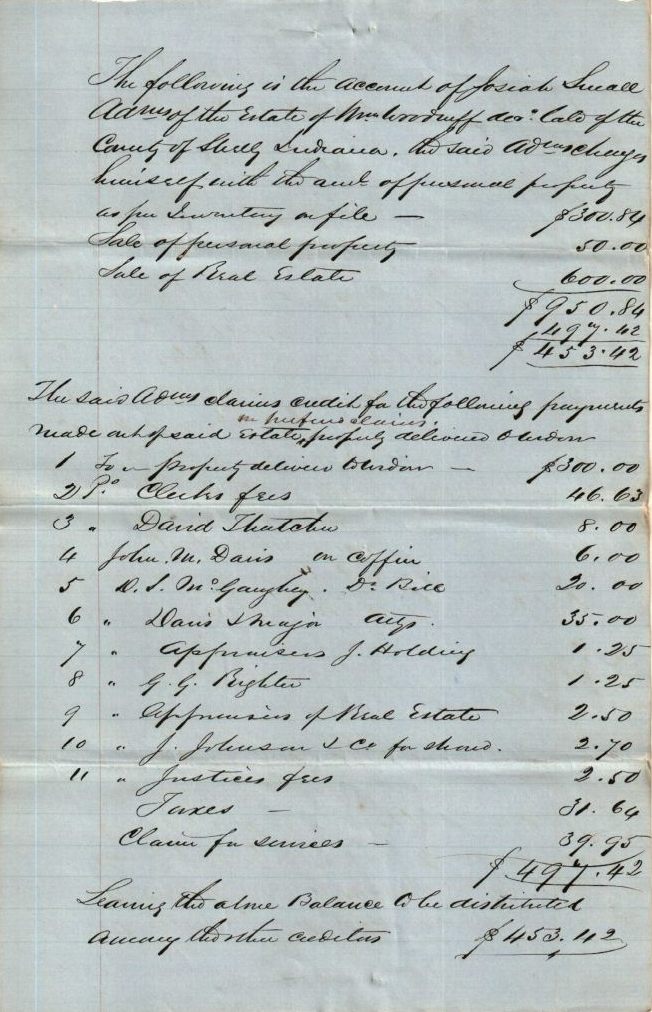 The following is the account of Josiah Small
Admrs of the Estate of Wm Woodruff decd. late of the
County of Shelby Indiana. the said Admrs charges
himself with the amt. of personal property
as per Inventory on file — $300.84
Sale of personal property 50.00
Sale of Real Estate 600.00
$950.84
497.42
$453.42
The said Admrs claims credit for the following payments
on preferred claims.
made out of said Estate, property delivered to widow
1 To property delivered to widow — $300.00
2 Pd Clerks fees 46.63
3 " David Thatcher 8.00
4 John M. Davis on coffin 6.00
5 D. S. McGaughey. Dr Bill 20.00
6 " Davis & Major Attys. 35.00
7 " Appraisers J. Holding 1.25
8 " G. G. Righter 1.25
9 " Appraisers of Real Estate 2.50
10 " J. Johnson & Co for shroud. 2.70
11 " Justices fees 2.50
Taxes — 31.64
Claim for services — 39.95
$497.42
Leaving the above Balance to be distributed
among the other creditors $453.42